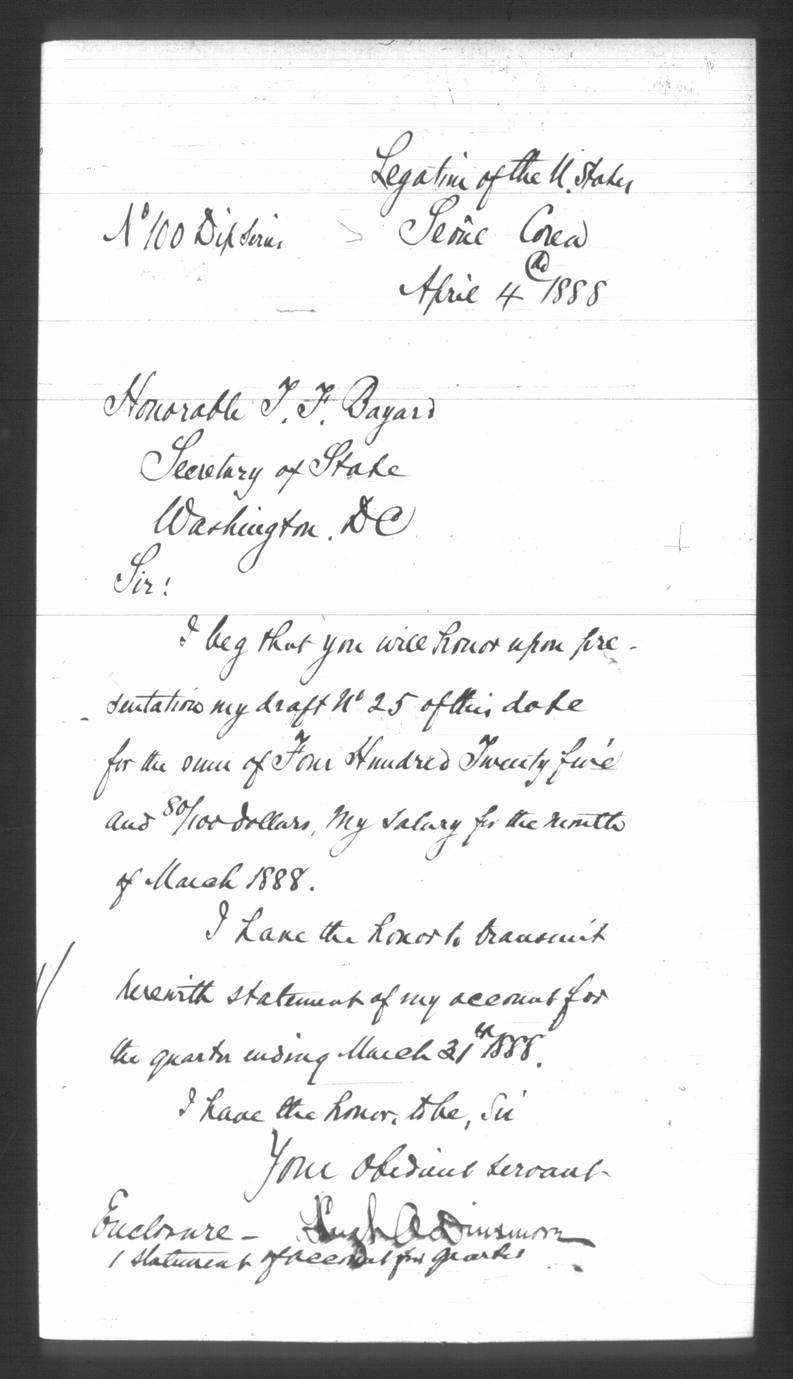 Legation of the U. States
No 100 Dip Series
Seoul Corea
April 4th 1888
Honorable T. F. Bayard
Secretary of State
Washington. DC
Sir!
I beg that you will honor upon pre-
sentation my draft No 25 of this date
for the sum of Four Hundred Twenty five
and 80/100 dollars, My salary for the month
of March 1888.
I have the honor to transmit
herewith statement of my account for
the quarter ending March 31st 1888.
I have the honor, to be, Sir
Your obedient servant
Hugh A Dinsmore
Enclosure -
1 statement of account for quarter